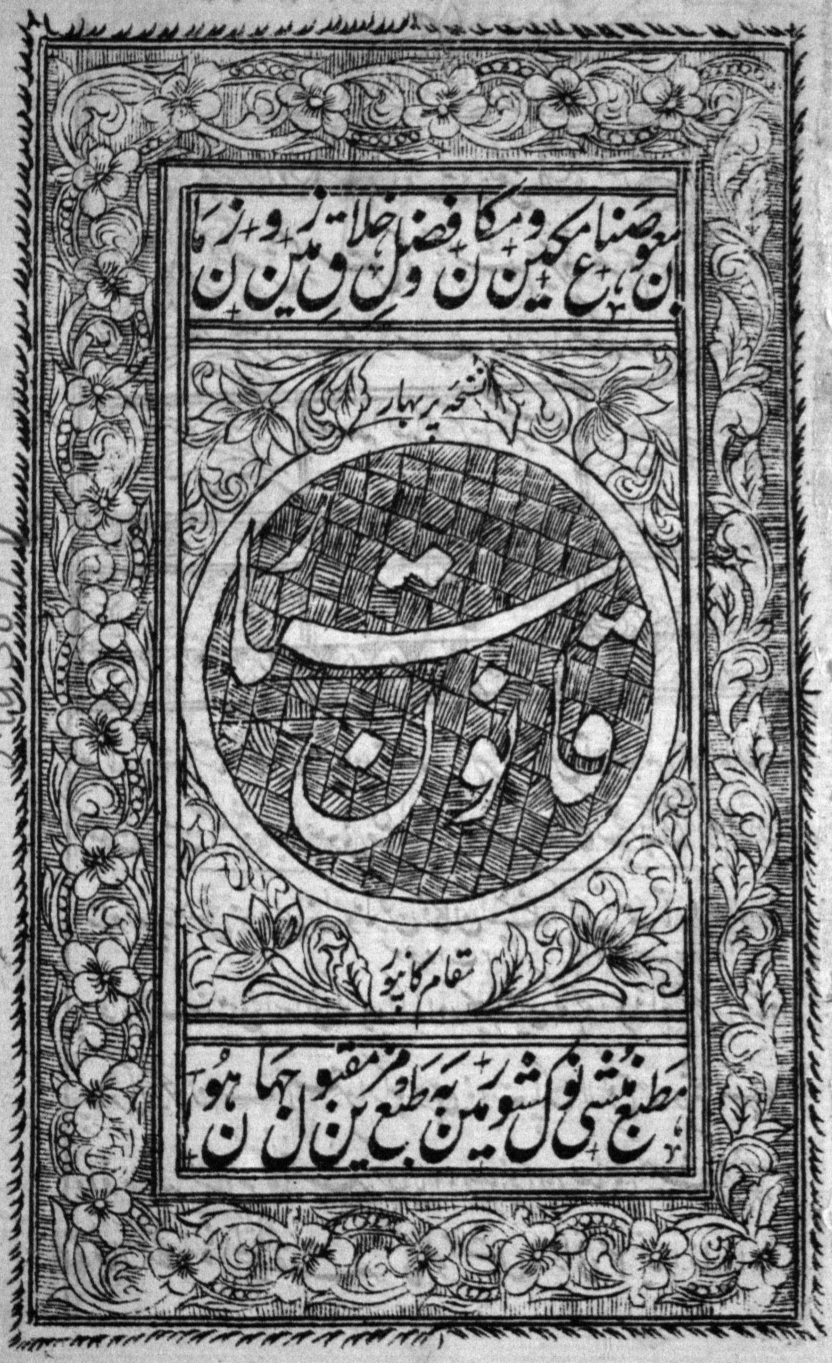 بعون صناع مکین و مکان و فضل خلاق زمین و زمان
نسخہ پر بہار
قانون ستار
بمقام کانپور
مطبع منشی نولکشور میں بہ طبع مزین مقبول جہان ہوا